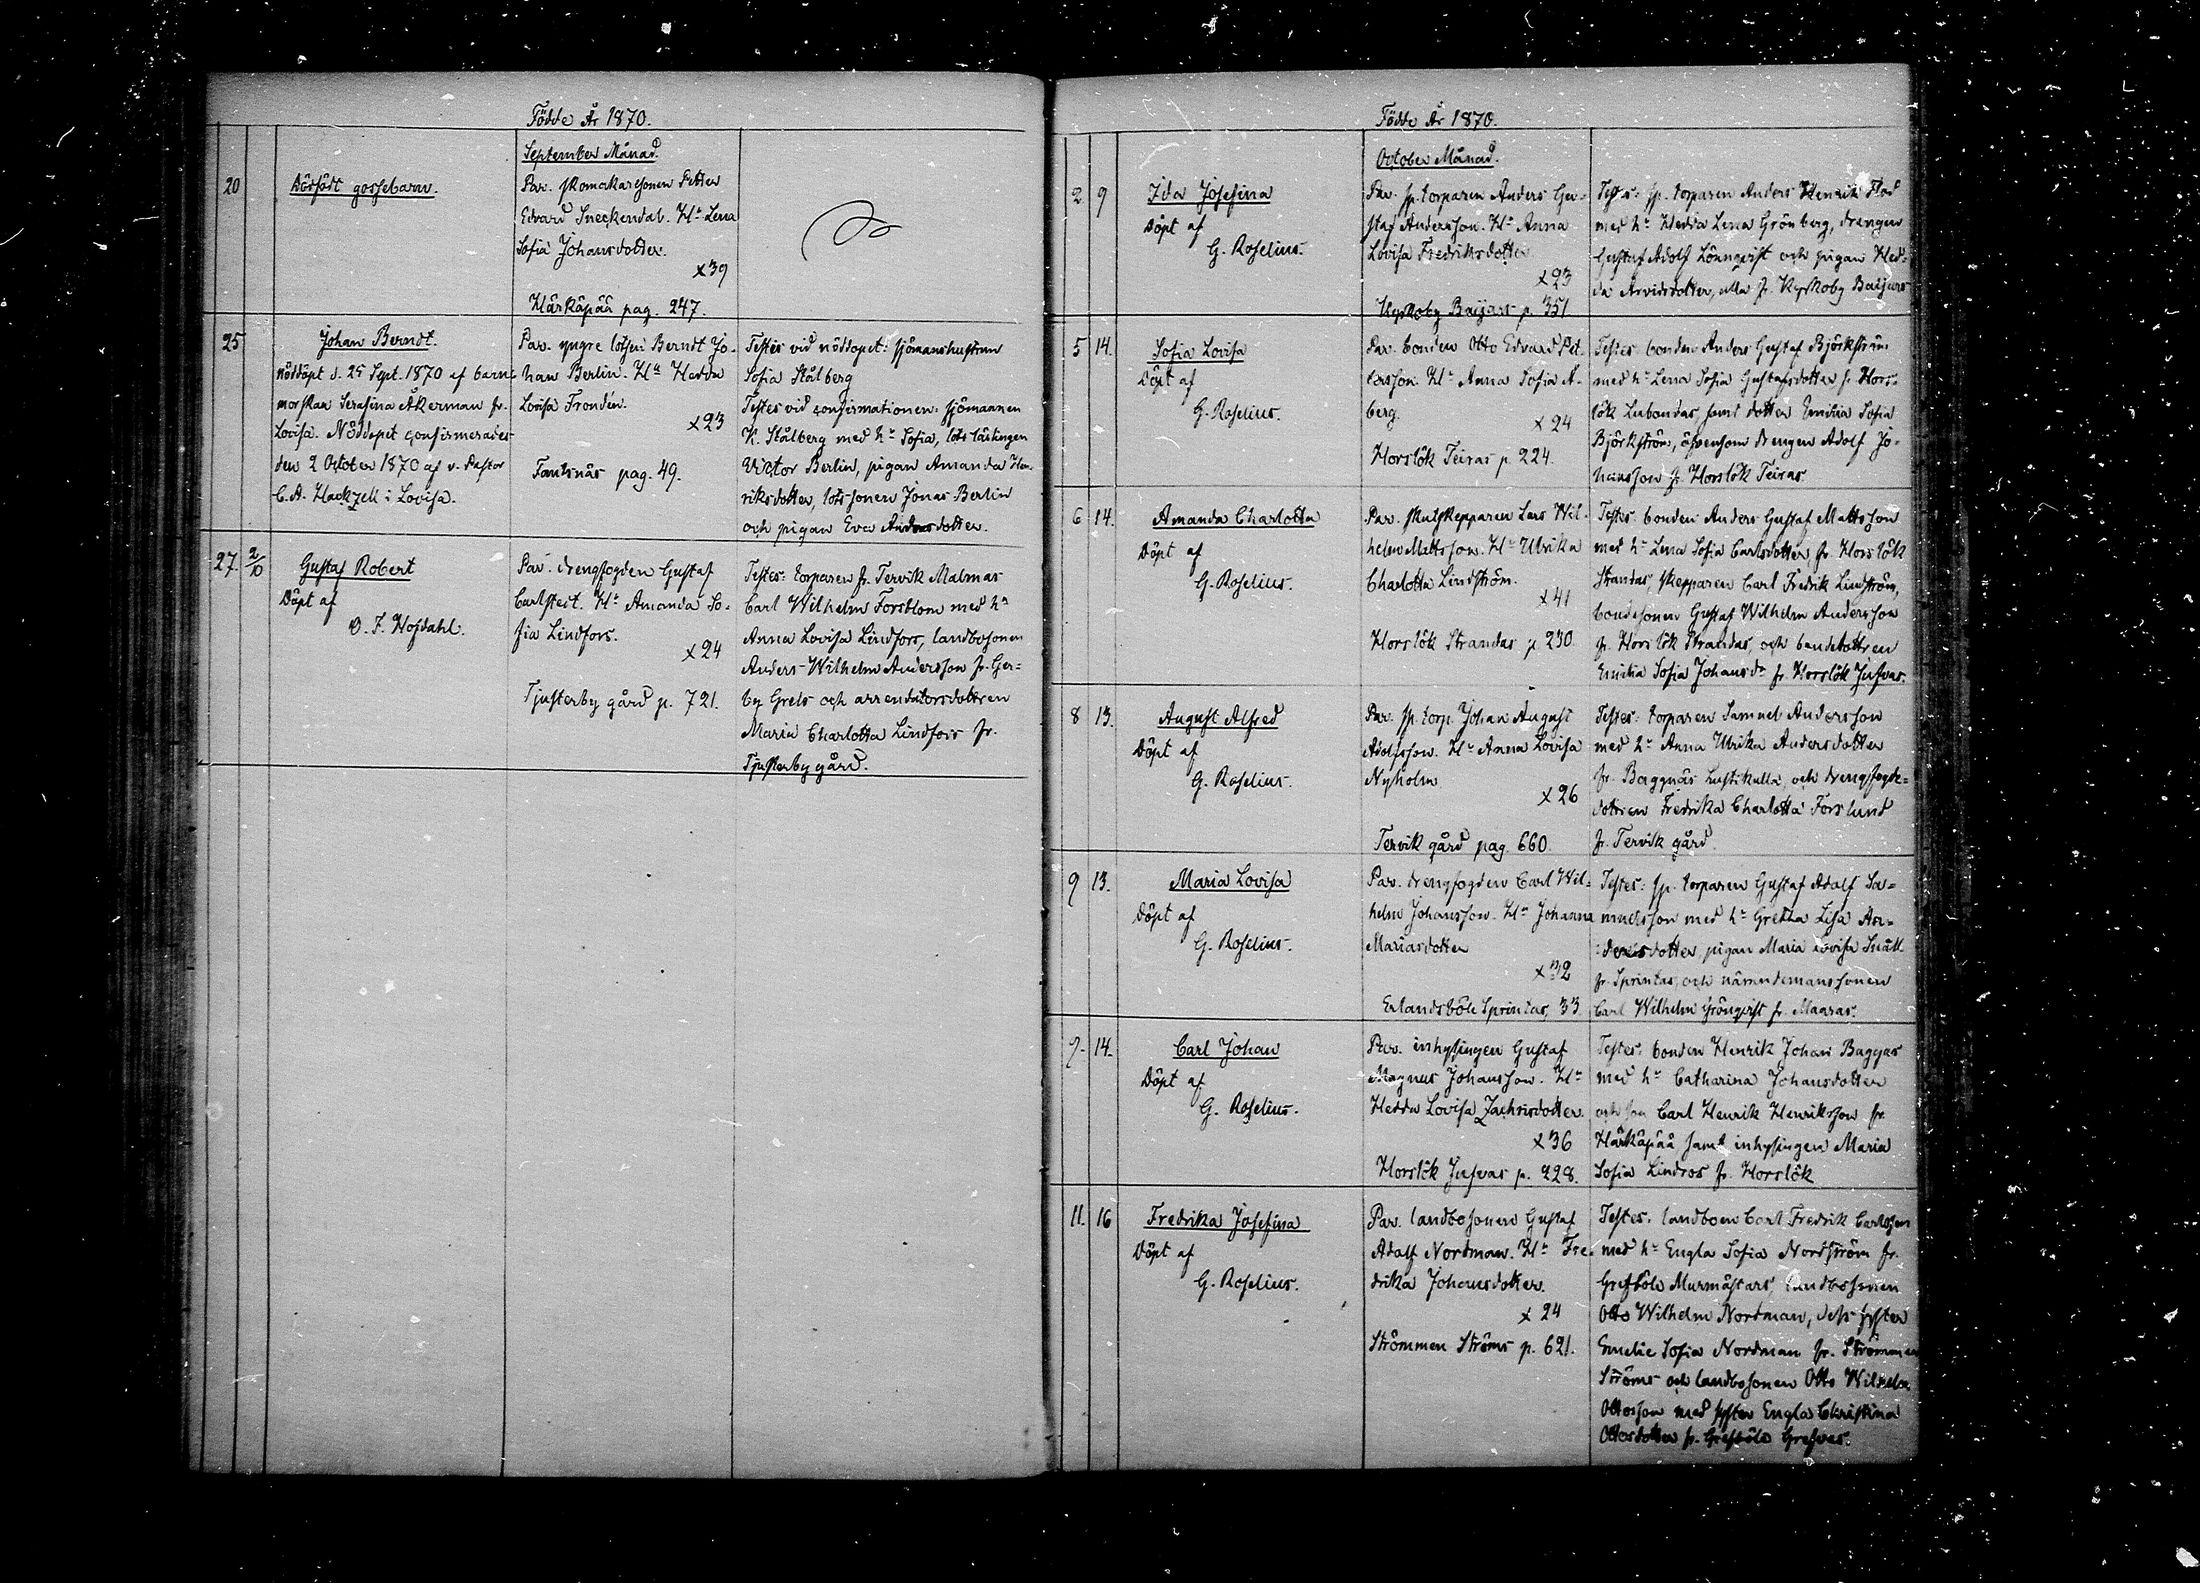 Födde År 1870.
September Månad.
20
Dödfödt gossebarn.
Par. skomakaresonen Petter
Edvard Sneckendal. Hu Lena
Sofia Johansdotter.
x39
Härkäpää pag. 247.
25
Johan Berndt.
nöddöpt d. 25 Sept. 1870 af barn-
morskan Serafina Åkerman fr.
Lovisa. Nöddopet confirmerades
den 2 October 1870 af v. Pastor
C. A. Hackzell i Lovisa.
Par. yngre lotsen Berndt Jo-
han Berlin. Hu Hedda
Lovisa Frondén.
x23
Fantsnäs pag. 49.
Testes vid nöddopet: sjömanshustrun
Sofia Stålberg
Testes vid confirmationen: sjömannen
K. Stålberg med hu Sofia, lotslärlingen
Victor Berlin, pigan Amanda Hen-
riksdotter, lotssonen Jonas Berlin
och pigan Eva Andersdotter.
27. 2/10
Gustaf Robert
Döpt af
O. F. Hofdahl.
Par. drengfogden Gustaf
Carlstedt. Hu Amanda So-
fia Lindfors.
x24
Tjusterby gård p. 721.
Testes: torparen fr. Tervik Malmas
Carl Wilhelm Forsblom med hu
Anna Lovisa Lindfors, landbosonen
Anders Wilhelm Andersson fr. Ger-
by Grels och arrendatorsdottren
Maria Charlotta Lindfors fr.
Tjusterby gård.
Födde År 1870.
October Månad.
2 9
Ida Josefina
Döpt af
G. Roselius.
Par. sp. torparen Anders Gu-
staf Andersson. Hu Anna
Lovisa Fredriksdotter
x23
Kyrkoby Baijars p. 351
Testes: sp. torparen Anders Henrik Flod
med hu Hedda Lena Grönberg, drengen
Gustaf Adolf Lönnqvist och pigan Hed-
da Arvidsdotter, alla fr. Kyrkoby Baijars
5 14.
Sofia Lovisa
Döpt af
G. Roselius.
Par. bonden Otto Edvard Pet-
tersson. Hu Anna Sofia Å-
berg.
x24
Horslök Teiras p. 224.
Testes: bonden Anders Gustaf Björkström
med hu Lena Sofia Gustafsdotter fr. Hors-
lök Lubondas samt dotter Emilia Sofia
Björkström, äfvensom drengen Adolf Jo-
hansson fr. Horslök Teiras.
6 14.
Amanda Charlotta
Döpt af
G. Roselius.
Par. skutskepparen Lars Wil-
helm Mattsson. Hu Ulrika
Charlotta Lindström.
x41
Horslök Strandas p. 230.
Testes: bonden Anders Gustaf Mattsson
med hu Lena Sofia Carlsdotter fr. Horslök
Strandas, skepparen Carl Fredrik Lindström,
bondesonen Gustaf Wilhelm Andersson
fr. Horslök Strandas, och bondedottren
Emilia Sofia Johansdr fr. Horslök Jusvas.
8 13.
August Alfred
Döpt af
G. Roselius.
Par. sp. torp. Johan August
Adolfsson. Hu Anna Lovisa
Nyholm
x26
Tervik gård pag. 660.
Testes: torparen Samuel Andersson
med hu Anna Ulrika Andersdotter
fr. Baggnäs Lustikulla, och drengfogde-
dottren Fredrika Charlotta Forslund
fr. Tervik gård.
9 13.
Maria Lovisa
Döpt af
G. Roselius.
Par. drengfogden Carl Wil-
helm Johansson. Hu Johanna
Mariasdotter
x32
Erlandsböle Sprintas, 33.
Testes: sp. torparen Gustaf Adolf Sa-
muelsson med hu Gretha Lisa An-
dersdotter, pigan Maria Lovisa Snäll
fr. Sprintas, och nämndemanssonen
Carl Wilhelm Grönqvist fr. Maaras.
9. 14.
Carl Johan
Döpt af
G. Roselius.
Par. inhysingen Gustaf
Magnus Johansson. Hu
Hedda Lovisa Zachrisdotter.
x36
Horslök Jusvas p. 228.
Testes: bonden Henrik Johan Baggas
med hu Catharina Johansdotter
och son Carl Henrik Henriksson fr.
Härkäpää samt inhysingen Maria
Sofia Lindros fr. Horslök
11. 16
Fredrika Josefina
Döpt af
G. Roselius.
Par. landbosonen Gustaf
Adolf Nordman. Hu Fre-
drika Johansdotter.
x24
Strömmen Ströms p. 621.
Testes: landboen Carl Fredrik Carlsson
med hu Engla Sofia Nordström fr.
Grefböle Murmästars, landbosonen
Otto Wilhelm Nordman, dess syster
Emelie Sofia Nordman fr. Strömmen
Ströms och landbosonen Otto Wilhelm
Ottosson med syster Engla Christina
Ottosdotter fr. Grefböle Grefvas.